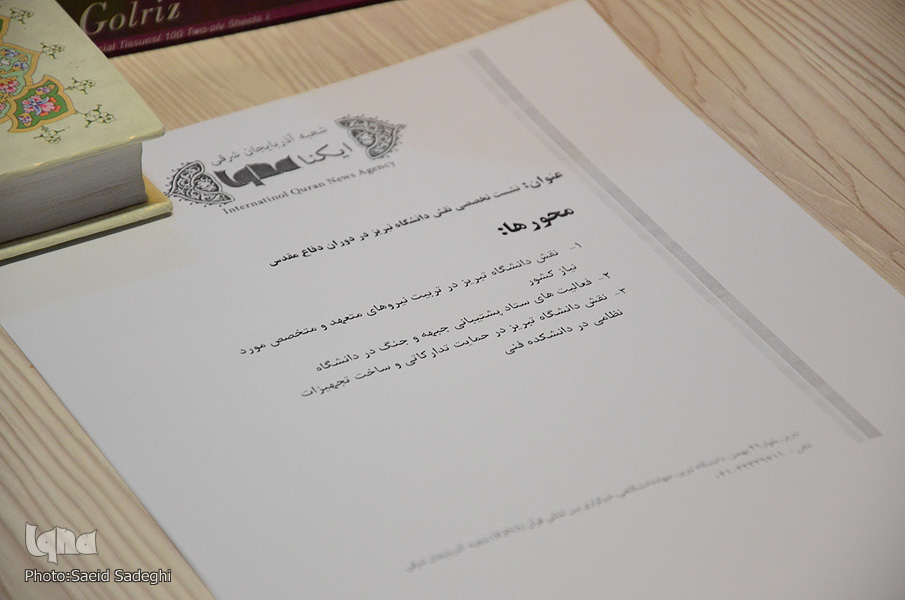 Golriz
cial Tissues/ 100 Two-ply Sheets
شعبه آذربایجان شرقی
ایکنا iqna
Internatinol Quran News Agency
عنوان: نشست تخصصی نقش دانشگاه تبریز در دوران دفاع مقدس
محورها:
۱- نقش دانشگاه تبریز در تربیت نیروهای متعهد و متخصص مورد
نیاز کشور
۲- فعالیت های ستاد پشتیبانی جبهه و جنگ در دانشگاه
۳- نقش دانشگاه تبریز در حمایت تدارکاتی و ساخت تجهیزات
نظامی در دانشکده فنی
iqna
Photo:Saeid Sadeghi